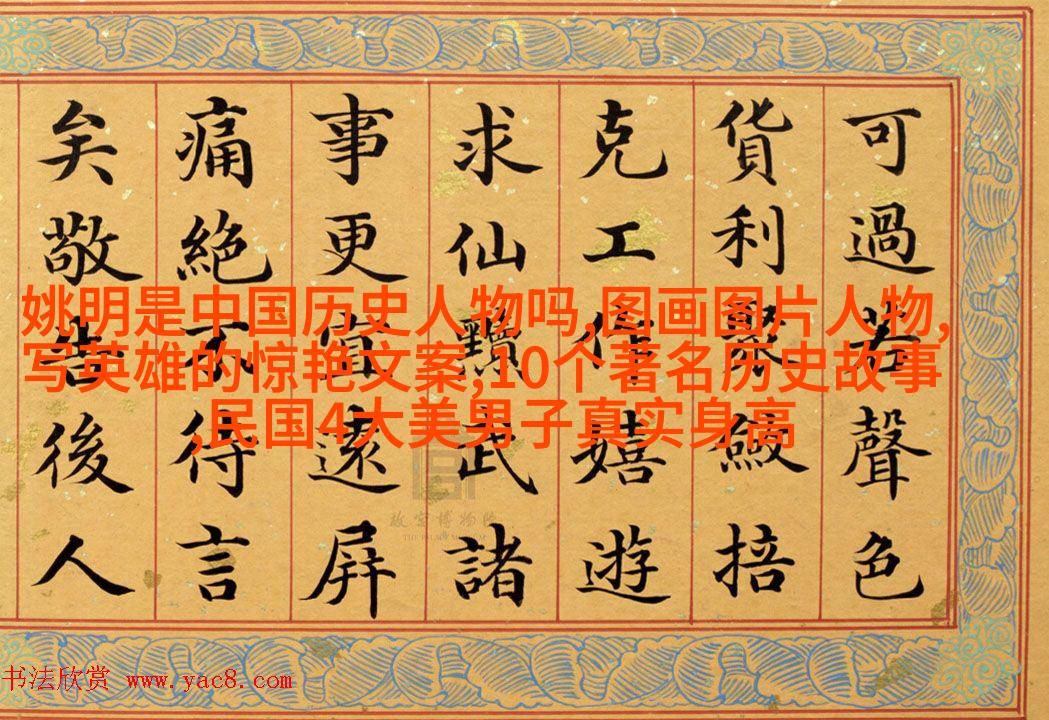 可過若聲色
貨利聚斂掊
克工作嬉遊
求仙黷武諸
事更宜遠屏
痛絕不待言
矣敬告後人
姚明是中国历史人物吗,图画图片人物,
写英雄的惊艳文案,10个著名历史故事
,民国4大美男子真实身高
故宫博物院
THE PALACE MUSEUM
书法欣赏 www.yac8.com